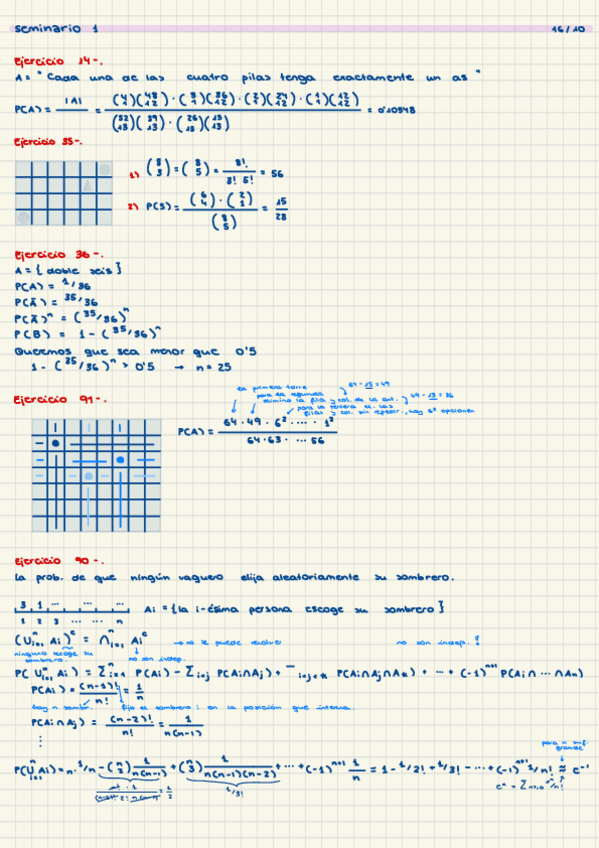 seminario 1 16/10
Ejercicio 14-.
A = "Cada una de las cuatro pilas tenga exactamente un as"
P(A) = |A| / = (4 1)(48 12)·(3 1)(36 12)·(2 1)(24 12)·(1 1)(12 12) / (52 13)(39 13)·(26 13)(13 13) = 0'10548
Ejercicio 35-.
1) (8 3) = (8 5) = 8! / 3! 5! = 56
2) P(S) = (6 4)·(2 1) / (8 5) = 15/28
Ejercicio 36-.
A = { doble seis }
P(A) = 1/36
P(Ā) = 35/36
P(Ā)^n = (35/36)^n
P(B) = 1 - (35/36)^n
Queremos que sea menor que 0'5
1 - (35/36)^n > 0'5 → n = 25
Ejercicio 91-.
la primera torre
para la segunda 64 - 15 = 49
elimino la fila y col. de la ant. 49 - 13 = 36
para la tercera el. las
filas y col. sin repetir, hay 6² opciones
P(A) = 64 · 49 · 6² · ... · 1² / 64·63· ... 56
Ejercicio 90-.
la prob. de que ningún vaquero elija aleatoriamente su sombrero.
3 1 ... ... ...
1 2 3 ... ... n Ai = { la i-ésima persona escoge su sombrero }
(U_{i=1}^n Ai)^c = ∩_{i=1}^n Ai^c → no se puede resolver no son indep. !
ninguno escoge su sombrero. no son indep.
P(U_{i=1}^n Ai) = Σ_{i=1}^n P(Ai) - Σ_{i<j} P(Ai∩Aj) + _{i<j<k} P(Ai∩Aj∩Ak) + ... + (-1)^{n+1} P(Ai∩ ... ∩An)
P(Ai) = (n-1)! / n! = 1/n
hay n sombr. fijo el sombrero i en la posición que interesa.
P(Ai∩Aj) = (n-2)! / n! = 1 / n(n-1)
⋮
para n suf. grande
P(U_{i=1}^n Ai) = n·1/n - (n 2) 1/n(n-1) + (n 3) 1/n(n-1)(n-2) + ... + (-1)^{n+1} 1/n = 1 - 1/2! + 1/3! - ... + (-1)^{n+1} 1/n! ≈ e^{-1}
= 1/2 1/3!